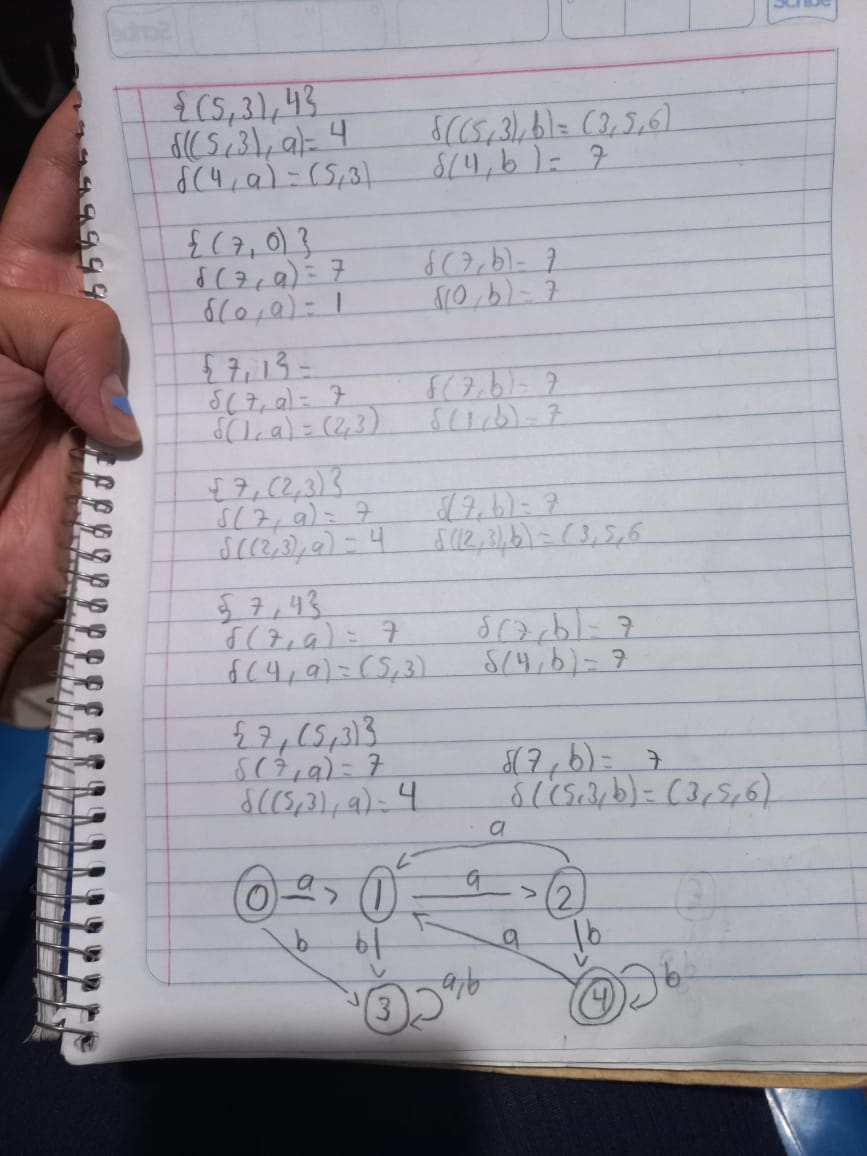 Scribe
{(5,3),4}
δ((5,3),a)=4 δ((5,3),b)=(3,5,6)
δ(4,a)=(5,3) δ(4,b)=7
{(7,0)}
δ(7,a)=7 δ(7,b)=7
δ(0,a)=1 δ(0,b)=7
{7,1}=
δ(7,a)=7 δ(7,b)=7
δ(1,a)=(2,3) δ(1,b)=7
{7,(2,3)}
δ(7,a)=7 δ(7,b)=7
δ((2,3),a)=4 δ((2,3),b)=(3,5,6
{7,4}
δ(7,a)=7 δ(7,b)=7
δ(4,a)=(5,3) δ(4,b)=7
{7,(5,3)}
δ(7,a)=7 δ(7,b)=7
δ((5,3),a)=4 δ((5,3,b)=(3,5,6)
a
0 a 1 a 2
b b a b
3 a,b 4 b